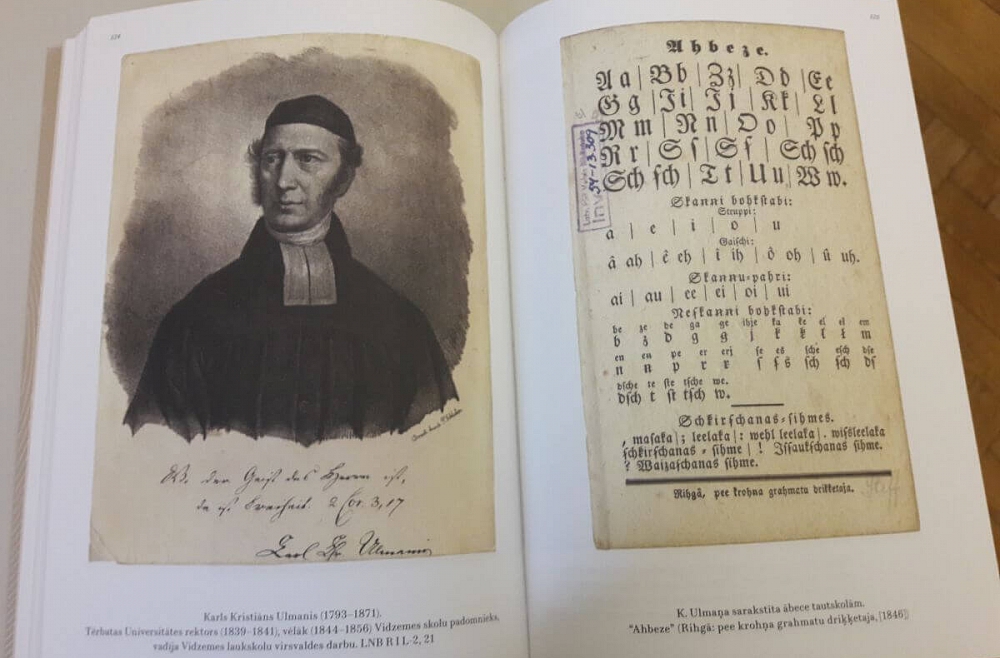 Wo der Geist des Herrn ist,
da ist Freiheit. 2 Cor. 3, 17
Karls Kristiāns Ulmanis (1793–1871).
Tērbatas Universitātes rektors (1839–1841), vēlāk (1844–1856) Vidzemes skolu padomnieks,
vadīja Vidzemes laukskolu virsvaldes darbu. LNB R I L-2, 21
Ahbeze.
A a | B b | Z z | D d | E e
G g | J i | J j | K k | L l
M m | N n | O o | P p
R r | S ſ | S ſ | Sch ſch
Sch ſch | T t | U u | W w.
Skanni bohkſtabi:
Struppi:
a | e | i | o | u
Gaiſchi:
â ah | ê eh | î ih | ô oh | û uh.
Skannu-pahri:
ai | au | ee | ei | oi | ui
Neſkanni bohkſtabi:
be ze de ga ge ihje ka ke el el em
b z d g ģ j k ķ l ł m
en en pe er erj ſe es ſche eſch dſe
n ņ p r ŗ ſ ſs ſch ſch dſ
dſche te ſte tſche we.
dſch t ſt tſch w.
Schkirſchanas-ſihmes.
, maſaka | ; leelaka | : wehl leelaka | . wiſsleelaka
ſchkirſchanas-ſihme | ! Jſſaukſchanas ſihme.
? Waizaſchanas ſihme.
Rihgâ, pee krohna grahmata drikketaja.
K. Ulmaņa sarakstīta ābece tautskolām.
"Ahbeze" (Rihgâ: pee krohņa grahmatu driķķetaja, [1846])